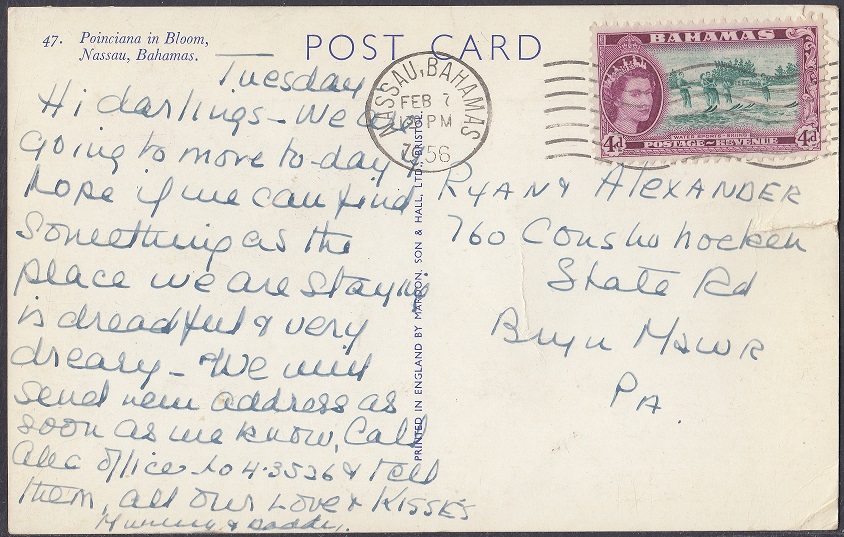 47. Poinciana in Bloom,
Nassau, Bahamas.
POST CARD
BAHAMAS
4d 4d
POSTAGE-REVENUE
NASSAU, BAHAMAS
FEB 7
PM
56
PRINTED IN ENGLAND BY MARDON, SON & HALL, LTD., BRISTOL.
Tuesday
Hi darlings - We are
going to move to-day
hope if we can find
something as the
place we are staying
is dreadful & very
dreary - We will
send new address as
soon as we know, Call
office 4-3526 & tell
them, all our Love & KISSES
Mummy & Daddy.
RYAN & ALEXANDER
760 Conshohocken
State Rd
Bryn MAWR
PA.